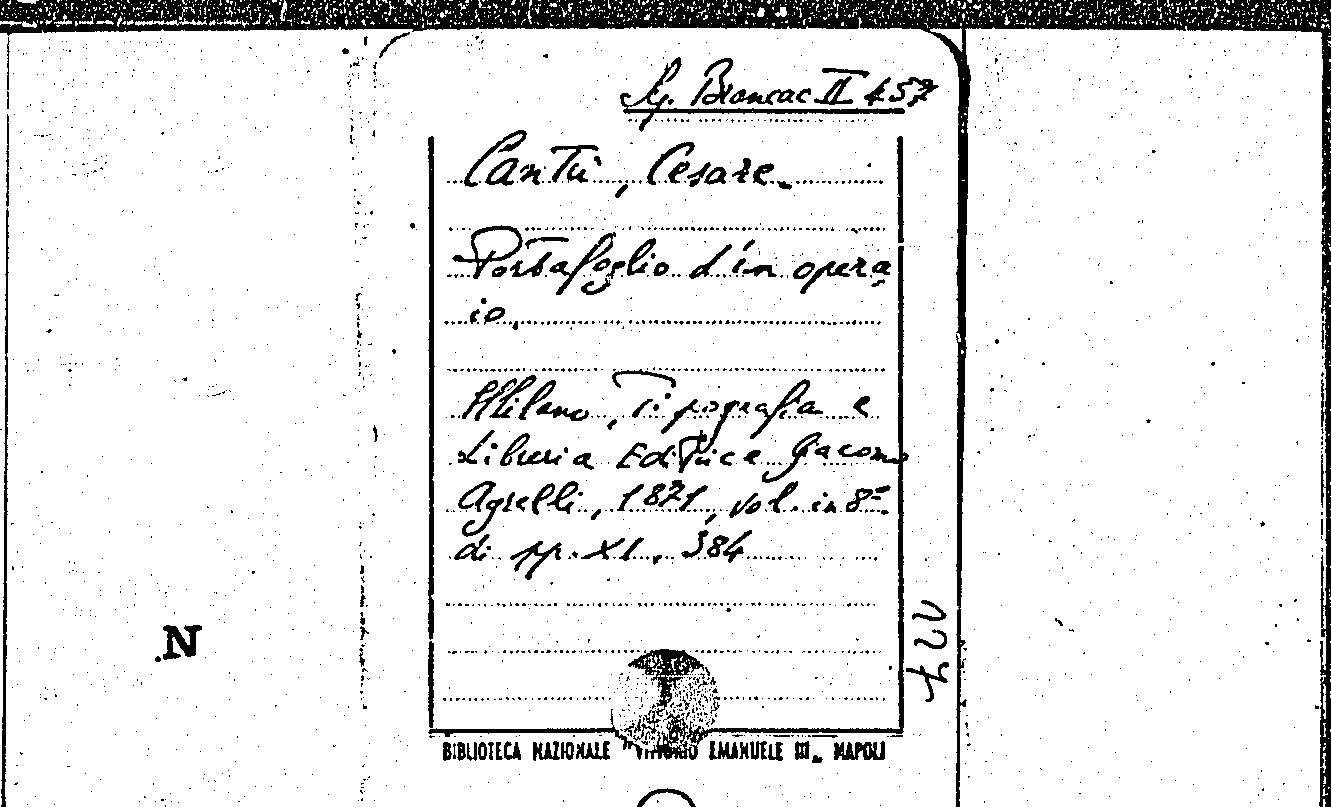 Sg. Brancac II k 57
Cantù, Cesare.
Portafoglio d'un opera
io.
Milano, Tipografia e
Libreria Editrice Giacomo
Agnelli, 1871, vol. in 8º.
di pp. XI, 384
N
BIBLIOTECA NAZIONALE "VITTORIO EMANUELE III„ NAPOLI